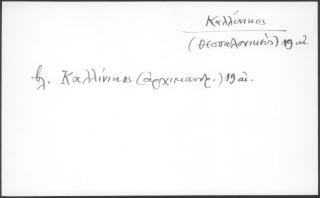 Καλλίνικος
(Θεσσαλονικεὺς) 19 αἰ.
βλ. Καλλίνικος (ἀρχιμανδρ.) 19 αἰ.